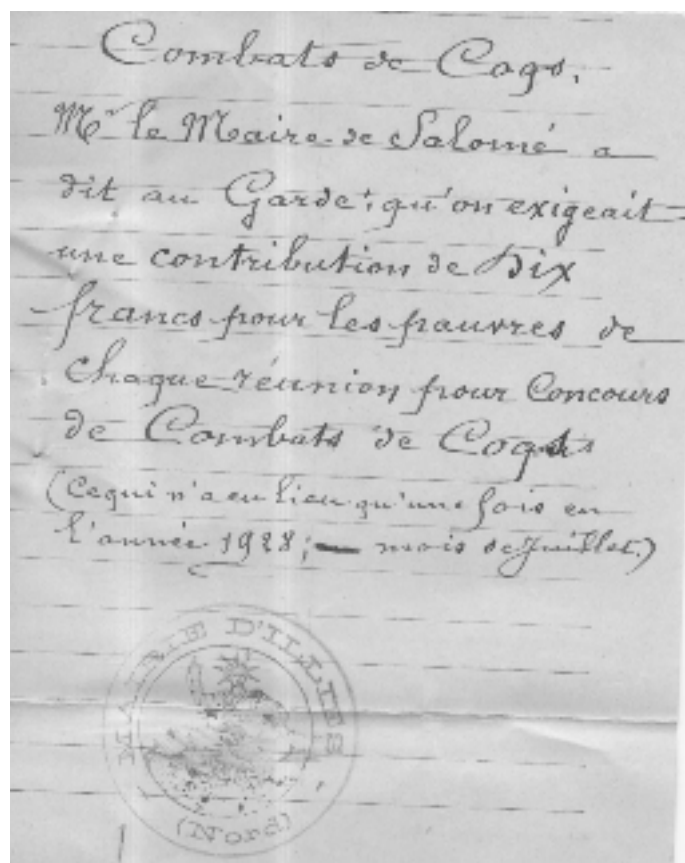 Combats de Coqs.
Mr le Maire de Salomé a
dit au Garde: qu'on exigeait
une contribution de Dix
francs pour les pauvres de
chaque réunion pour Concours
de Combats de Coqs
(Ce qui n'a eu lieu qu'une fois en
l'année 1928; — mois de Juillet.)
MAIRIE D'ILLIES
(Nord)